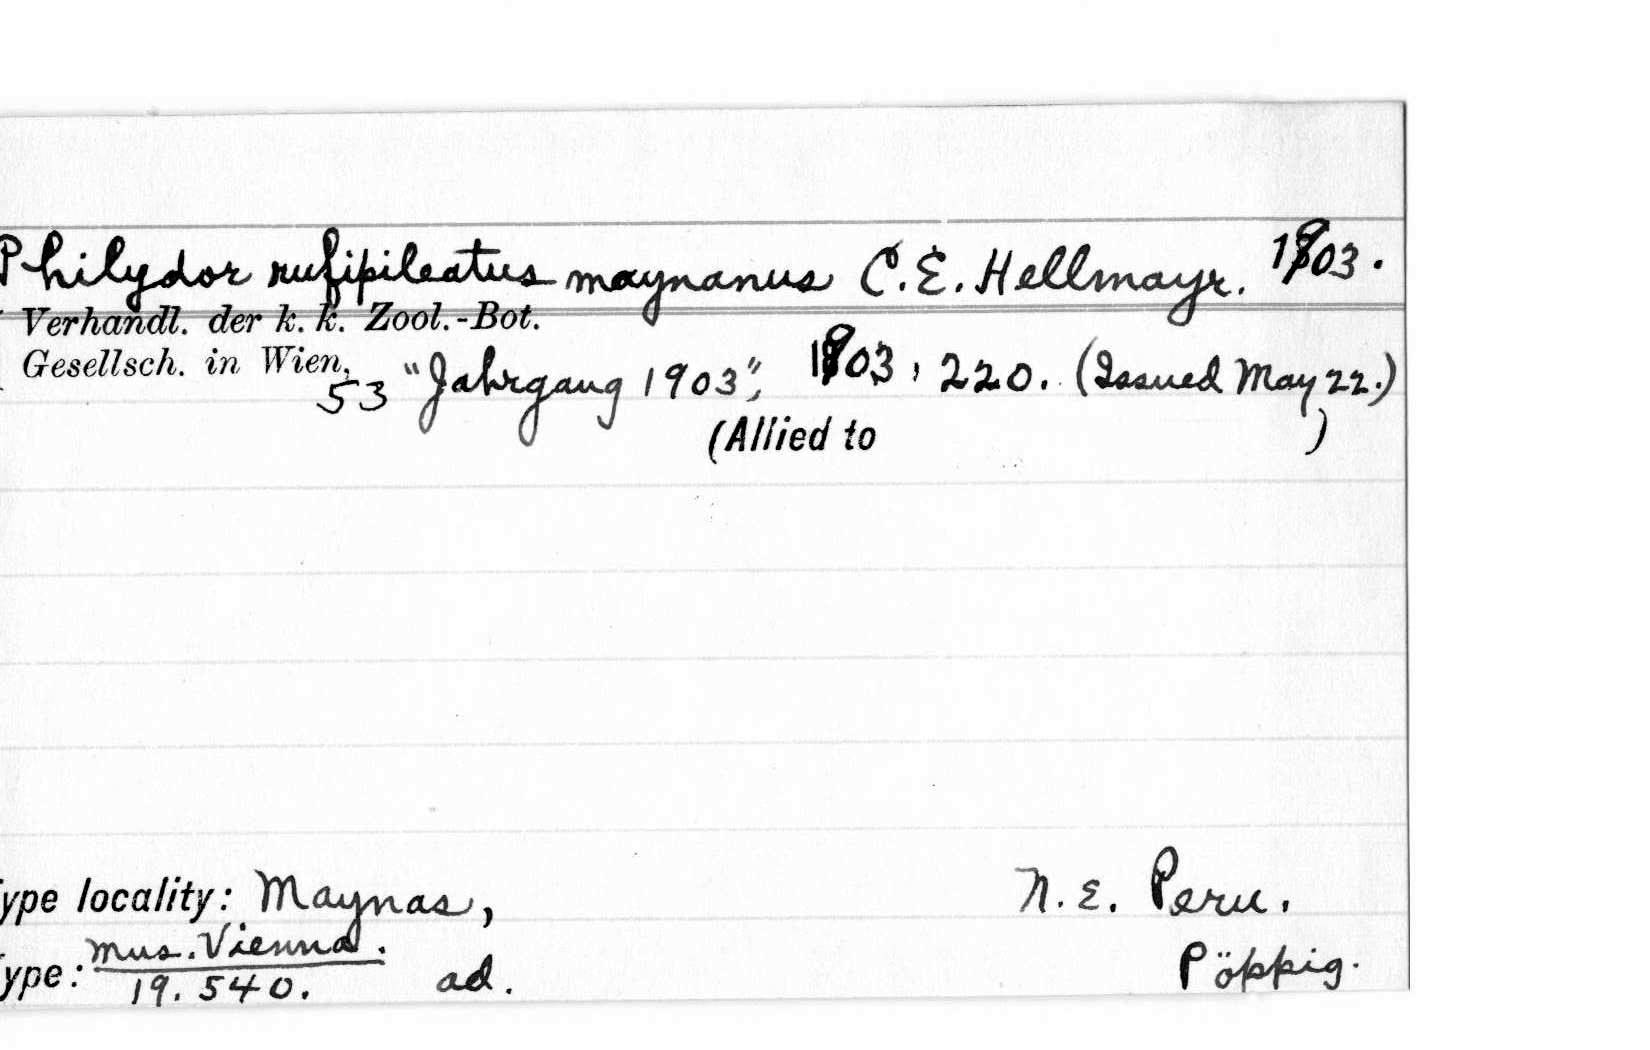 Philydor rufipileatus maynanus C.E. Hellmayr. 1903.
Verhandl. der k. k. Zool.-Bot.
Gesellsch. in Wien,
53 "Jahrgang 1903", 1903, 220. (Issued May 22.)
(Allied to )
ype locality: Maynas, N.E. Peru.
ype: Mus. Vienna. 
19.540. ad. Pöppig.